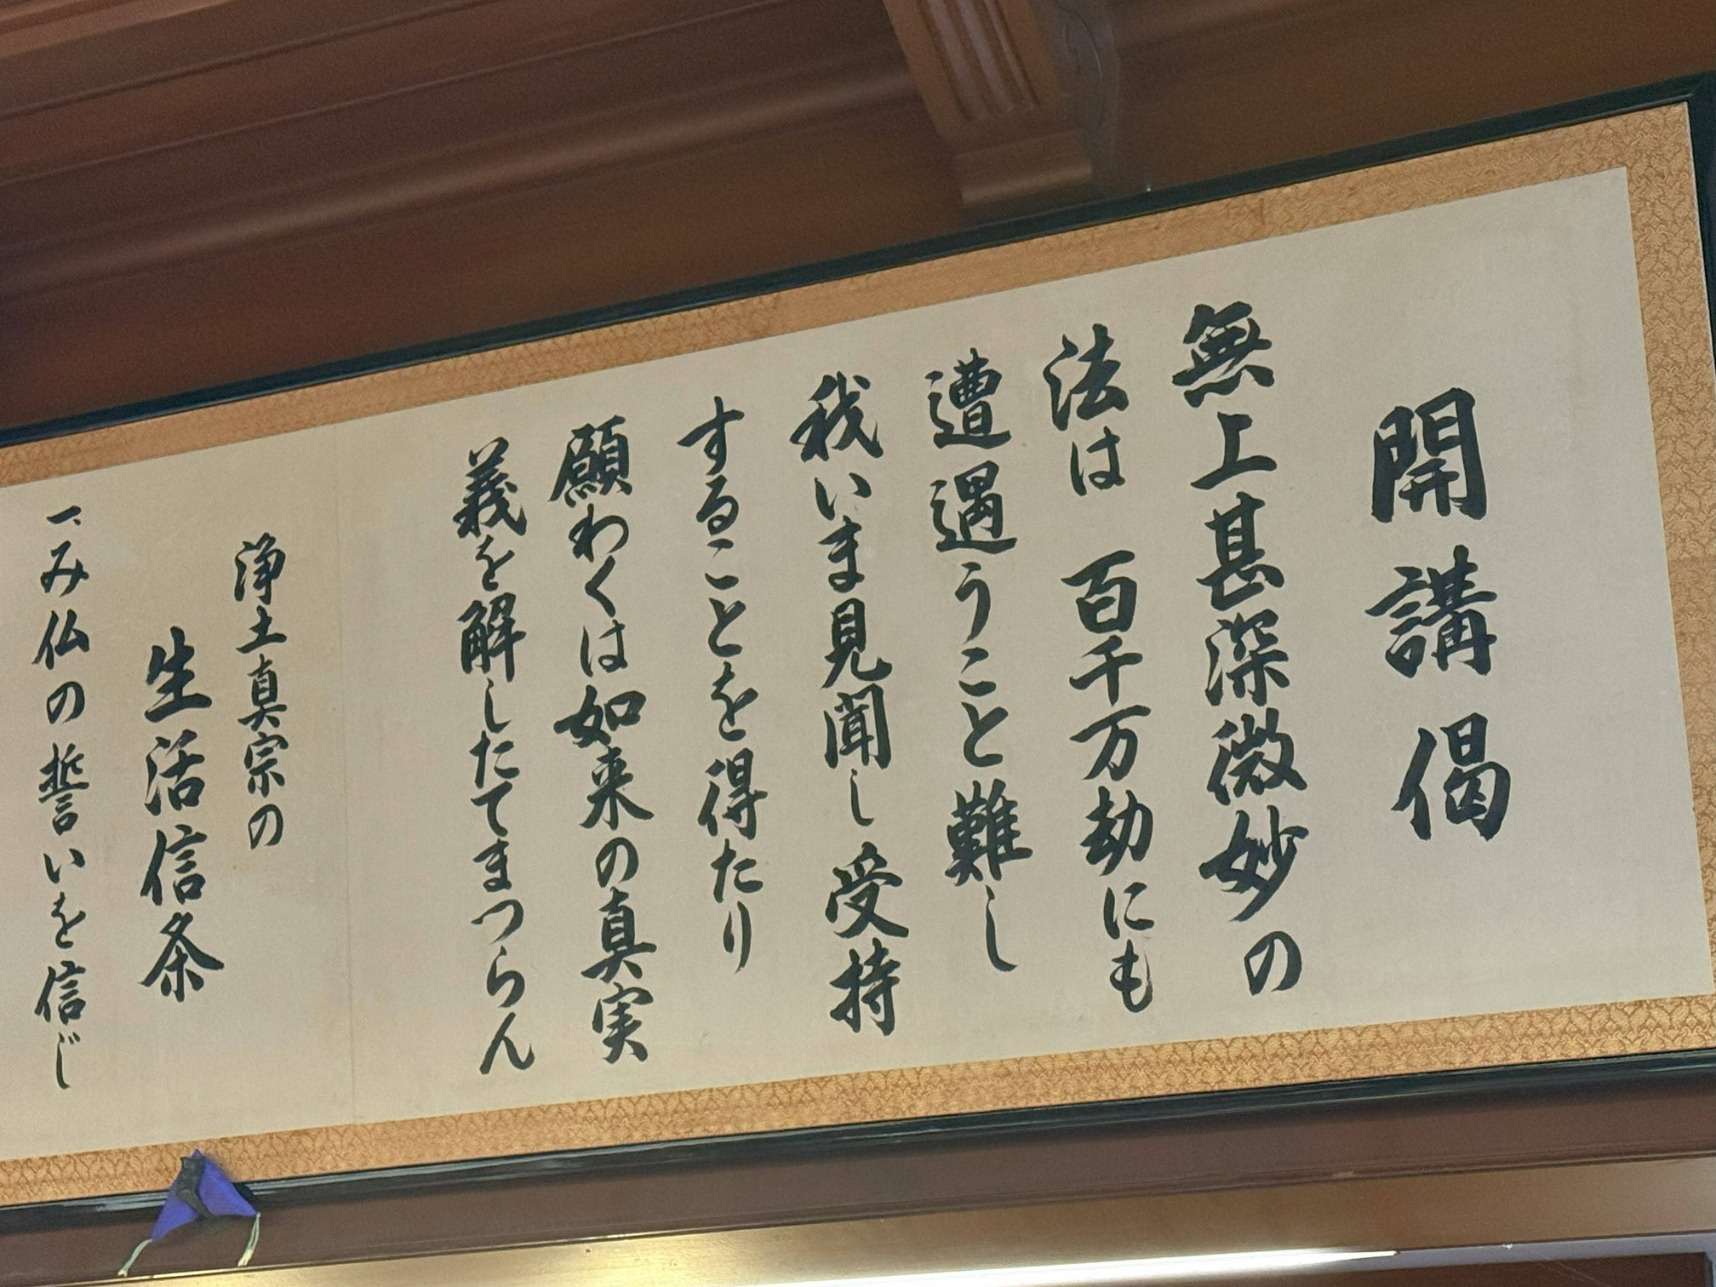 開講偈
無上甚深微妙の
法は 百千万劫にも
遭遇うこと難し
我いま見聞し受持
することを得たり
願わくは如来の真実
義を解したてまつらん
浄土真宗の
生活信条
一、み仏の誓いを信じ